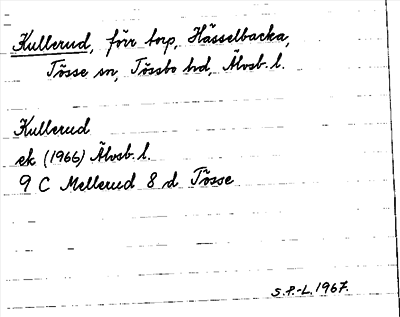 Kullerud, förr torp, Hässelbacka,
Tösse sn, Tössbo hd, Älvsb. l.
Kullerud
ek (1966) Älvsb. l.
9 C Mellerud 8 d Tösse
S.P.-L. 1967.